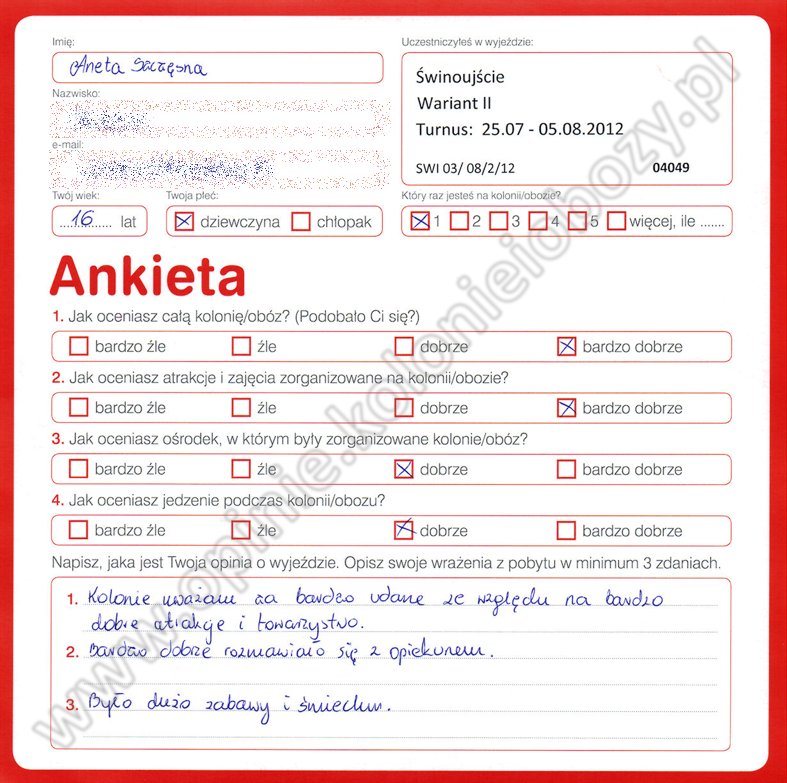 Imię:
Aneta Szczęsna
Nazwisko:
e-mail:
Twój wiek:
16 lat
Twoja płeć:
dziewczyna chłopak
Uczestniczyłeś w wyjeździe:
Świnoujście
Wariant II
Turnus: 25.07 - 05.08.2012
SWI 03/ 08/2/12 04049
Który raz jesteś na kolonii/obozie?
1 2 3 4 5 więcej, ile .......
Ankieta
1. Jak oceniasz całą kolonię/obóz? (Podobało Ci się?)
bardzo źle źle dobrze bardzo dobrze
2. Jak oceniasz atrakcje i zajęcia zorganizowane na kolonii/obozie?
bardzo źle źle dobrze bardzo dobrze
3. Jak oceniasz ośrodek, w którym były zorganizowane kolonie/obóz?
bardzo źle źle dobrze bardzo dobrze
4. Jak oceniasz jedzenie podczas kolonii/obozu?
bardzo źle źle dobrze bardzo dobrze
Napisz, jaka jest Twoja opinia o wyjeździe. Opisz swoje wrażenia z pobytu w minimum 3 zdaniach.
1. Kolonie uważam za bardzo udane ze względu na bardzo
dobre atrakcje i towarzystwo.
2. Bardzo dobrze rozmawiało się z opiekunem.
3. Było dużo zabawy i śmiechu.
www.opinie.kolonieiobozy.pl